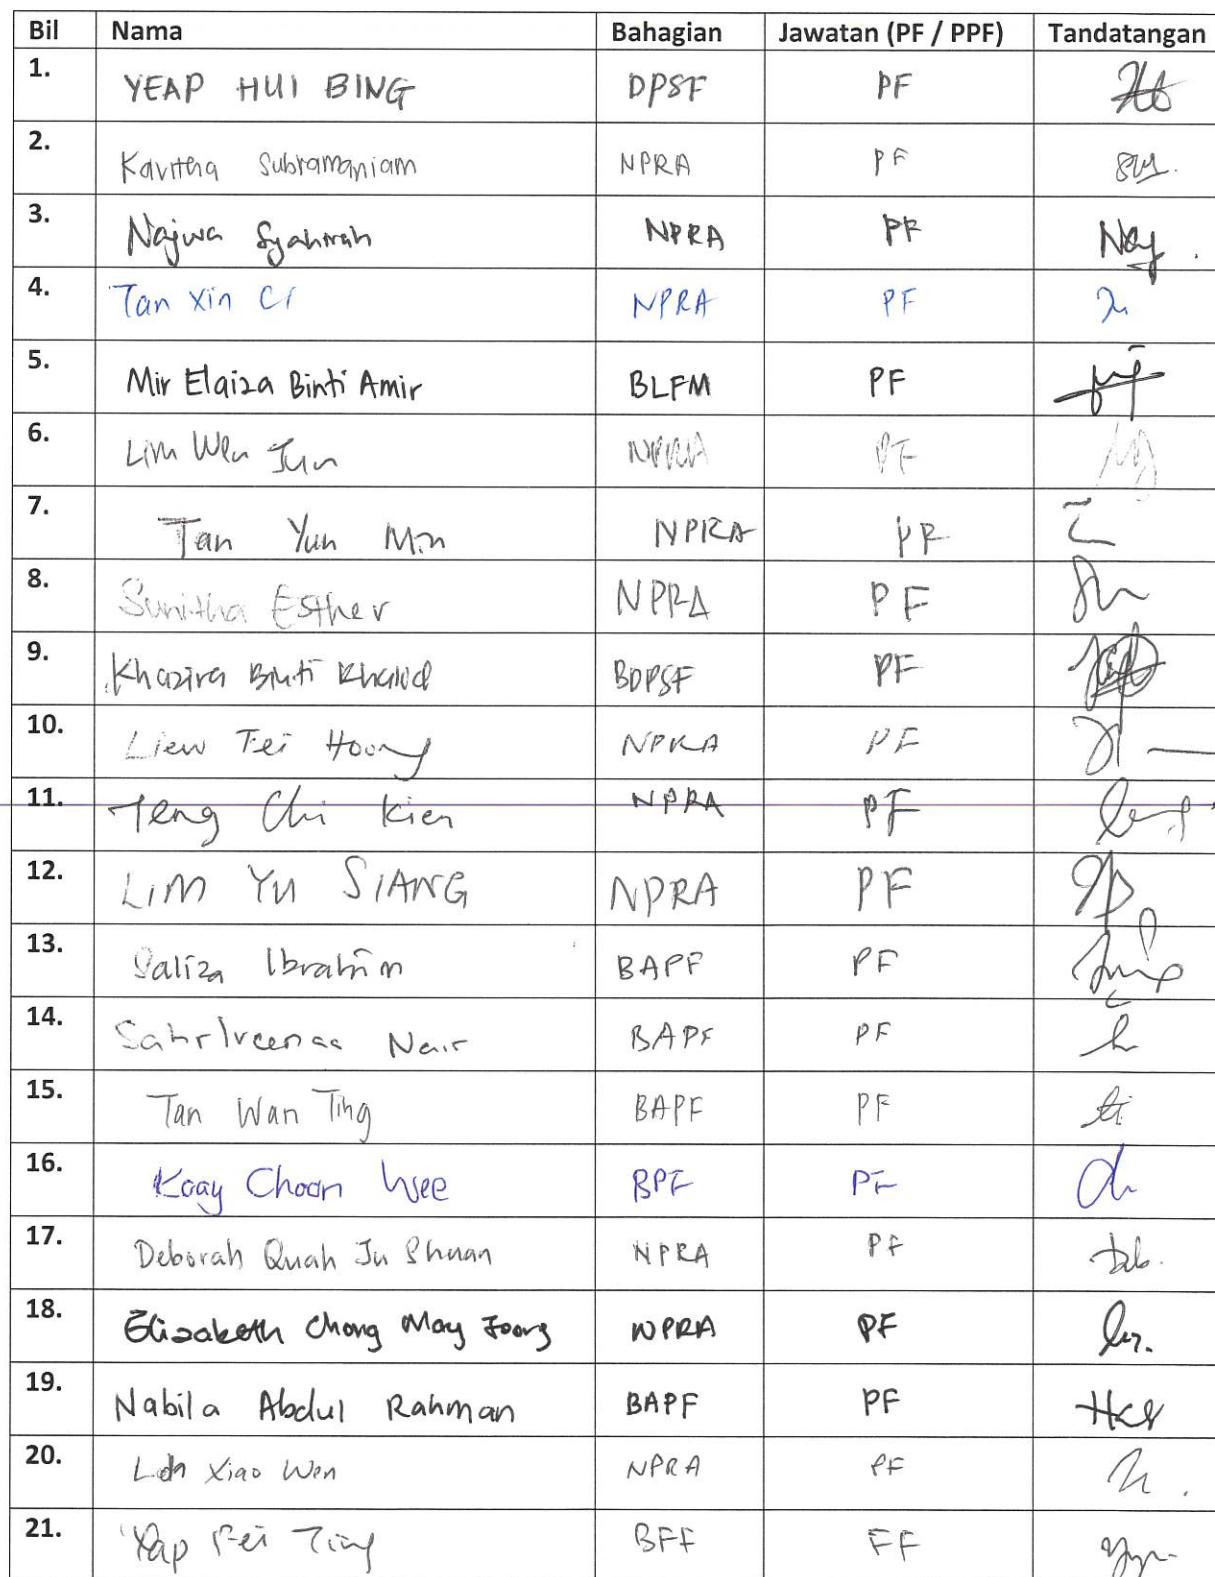 Bil Nama Bahagian Jawatan (PF / PPF) Tandatangan
1. YEAP HUI BING DPSF PF
2. Kavitha Subramaniam NPRA PF
3. Najwa Syahirah NPRA PF
4. Tan Xin Ci NPRA PF
5. Mir Elaiza Binti Amir BLFM PF
6. Lim Wen Jun NPRA PF
7. Tan Yun Min NPRA PF
8. Sunitha Esther NPRA PF
9. Khazira Binti Khalid BDPSF PF
10. Liew Fei Hoong NPRA PF
11. Teng Chi Kien NPRA PF
12. LIM YU SIANG NPRA PF
13. Saliza Ibrahim BAPF PF
14. Nair BAPF PF
15. Tan Wan Ting BAPF PF
16. Kaay Choon Wee BPF PF
17. Deborah Quah Ju Shuan NPRA PF
18. Elizabeth Chong May Foong NPRA PF
19. Nabila Abdul Rahman BAPF PF
20. Loh Xiao Wen NPRA PF
21. Yap Fei Ting BFF FF